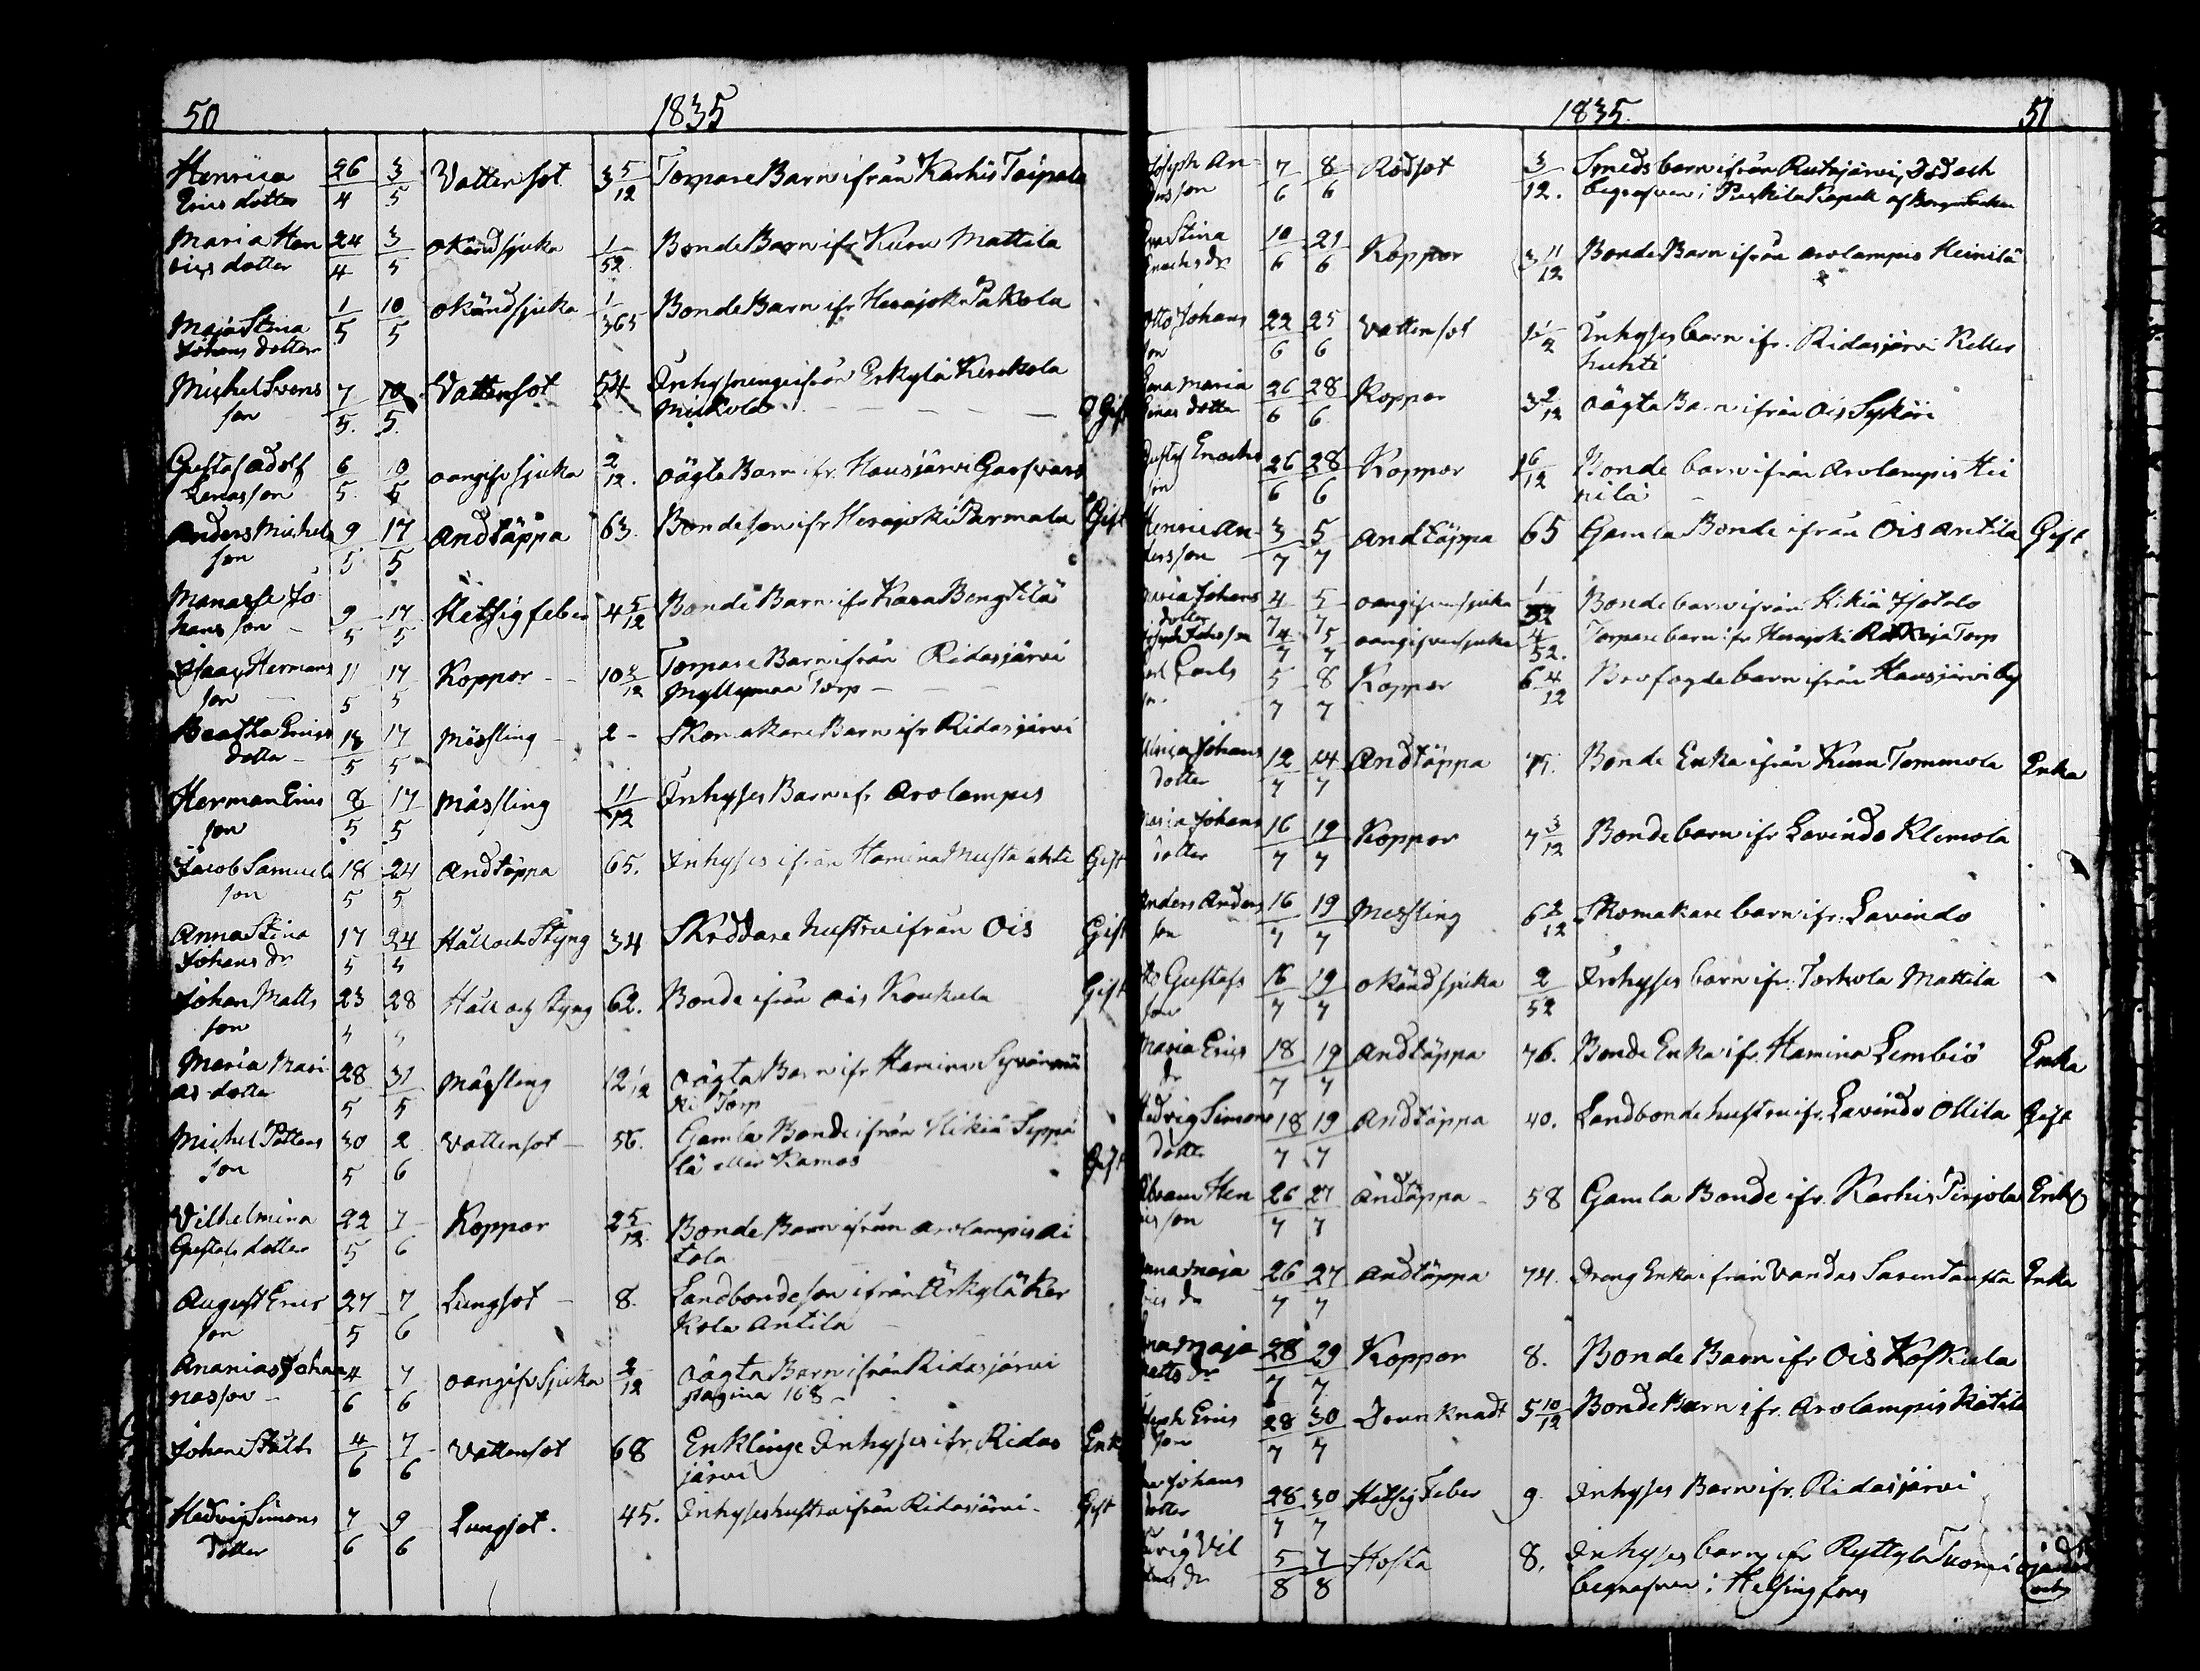 50 1835
Henrica 26 3 Vattensot 3 5/12 Torpare Barn ifrån Karhis Taipale
Ericsdotter 4 5
Maria Hen 24 3 okänd sjuka 1/52 Bonde Barn ifr Kuru Mattila
ricsdotter 4 5
Maja Stina 1 10 okänd sjuka 1/365 Bonde Barn ifr Herajoki Pakola
Johansdotter 5 5
Michel Svens 7 10 Vattensot 54 Inhysninge ifrån Erkylä Kerckola
son 5. 5. Miskola Gift
Gustaf Adolf 6 10 oangifv sjuka 2/12. oägta Barn ifr. Hausjärvi
Lenasson 5. 5
Anders Michels 9 17 Andtäppa 63. Bondeson ifr Herajoki Parmala Gift
son 5 5
Manasse Jo 9 17 Hetsig feber 4 5/12 Bonde Barn ifr Kara Bengtilä
hansson 5 5
Isaac Hermans 11 17 Koppor 10 3/12 Torpare Barn ifrån Ridasjärvi
son 5 5 Myllymaa Torp
Beatha Erics 13 17 Mässling 2 Skomakare Barn ifr Ridasjärvi
dotter 5 5
Herman Erics 8 17 Mässling 11/12 Inhyses Barn ifr Arolampis
son 5 5
Jacob Samuels 18 24 Andtäppa 65. Inhyses ifrån Hamina Gift
son 5 5
Anna Stina 17 24 Håll och Styng 34 Skräddare hustru ifrån Ois Gift
Johans dr 5 5
Johan Matts 23 28 Håll och styng 62. Bonde ifrån Ois Koukula Gift
son 5 5
Maria Mari 28 31 Mässling 12 1/12 oägta Barn ifr Hamina
as dotter 5 5 ki Torp
Michel Petters 30 2 Vattensot 56. Gamla Bonde ifrån Hikiä Seppä
son 5 6 lä eller Ramas Gift
Vilhelmina 22 7 Koppor 2 5/12 Bonde Barn ifrån Arolampis Ai
Gustafsdotter 5 6 tola
August Erics 27 7 Lungsot 8. Landbondeson ifrån Ärkylä Ker
son 5 6 kola Antila
Ananias Johan 4 7 oangifv Sjuka 2/12 oägta Barn ifrån Ridasjärvi
nasson 6 6 pagina 168
Johan Ståth 4 7 Vattensot 68 Enklinge Inhyses ifr. Ridas Enk
6 6 järvi
Hedvig Simons 7 9 Lungsot. 45. Inhyses hustru ifrån Ridasjärvi Gift
dotter 6 6
1835. 51
Joseph An 7 8 Rödsot 3/12. Smeds barn ifrån Rutajärvi, Död och
dersson 6 6 begrafven i Kapell af
Eva Stina 10 21 Koppor 3 11/12 Bonde Barn ifrån Arolampis Heinilä
Enochs dr 6 6
Otto Johans 22 25 Vattensot 1 1/2 Inhyses barn ifr. Ridasjärvi Keller
son 6 6 huhti
maria 26 28 Koppor 3 2/12 oägta Barn ifrån Ois Syköri
dotter 6 6
Gustaf Enochs 26 28 Koppor 1 6/12 Bonde barn ifrån Arolampis Hei
son 6 6 nilä
Henric An 3 5 Andtäppa 65 Gamla Bonde ifrån Ois Antila Gift
dersson 7 7
Maria Johans 4 5 oangifven sjuka 1/52 Bonde barn ifrån Hikiä Isotalo
dotter 7 7
Joseph Johsson 4 5 oangifven sjuka 4/52. Torpare barn ifr Herajoki Torp
7 7
Carls 5 8 Koppor 6 4/12 Brofogde barn ifrån Hausjärvi by
7 7
Ulrica Johans 12 14 Andtäppa 75. Bonde Enka ifrån Kuru Tommola Enka
dotter 7 7
Maria Johans 16 19 Koppor 7 3/12 Bonde barn ifr Lavindo Klemola
dotter 7 7
Anders Anders 16 19 Messling 6 2/12 Skomakare barn ifr. Lavindo
son 7 7
Gustafs 16 19 okänd sjuka 2/52 Inhyses barn ifr. Torhola Mattila
son 7 7
Maria Erics 18 19 Andtäppa 76. Bonde Enka ifr. Hamina Lembiö Enka
dr 7 7
Hedvig Simons 18 19 Andtäppa 40. Landbonde hustru ifr. Lavindo Ollila Gift
dotter 7 7
Abram Hen 26 27 Andtäppa 58 Gamla Bonde ifr. Karhis Pirjola Enkl
ricsson 7 7
Anna Maja 26 27 Andtäppa 74. Dreng Enka ifrån Vandas Enka
Erics dr 7 7
Maja 28 29 Koppor 8. Bonde Barn ifr Ois Koskula
Matts dr 7 7
Joseph Erics 28 30 Drunknadt 5 10/12 Bonde Barn ifr. Arolampis
son 7 7
Johans 28 30 Hetsig Feber 9 Inhyses Barn ifr. Ridasjärvi
dotter 7 7
Vil 5 7 Hosta 8. Inhyses barn ifr Ryttylä Tuomi
dr 8 8 begrafven i Helsingfors